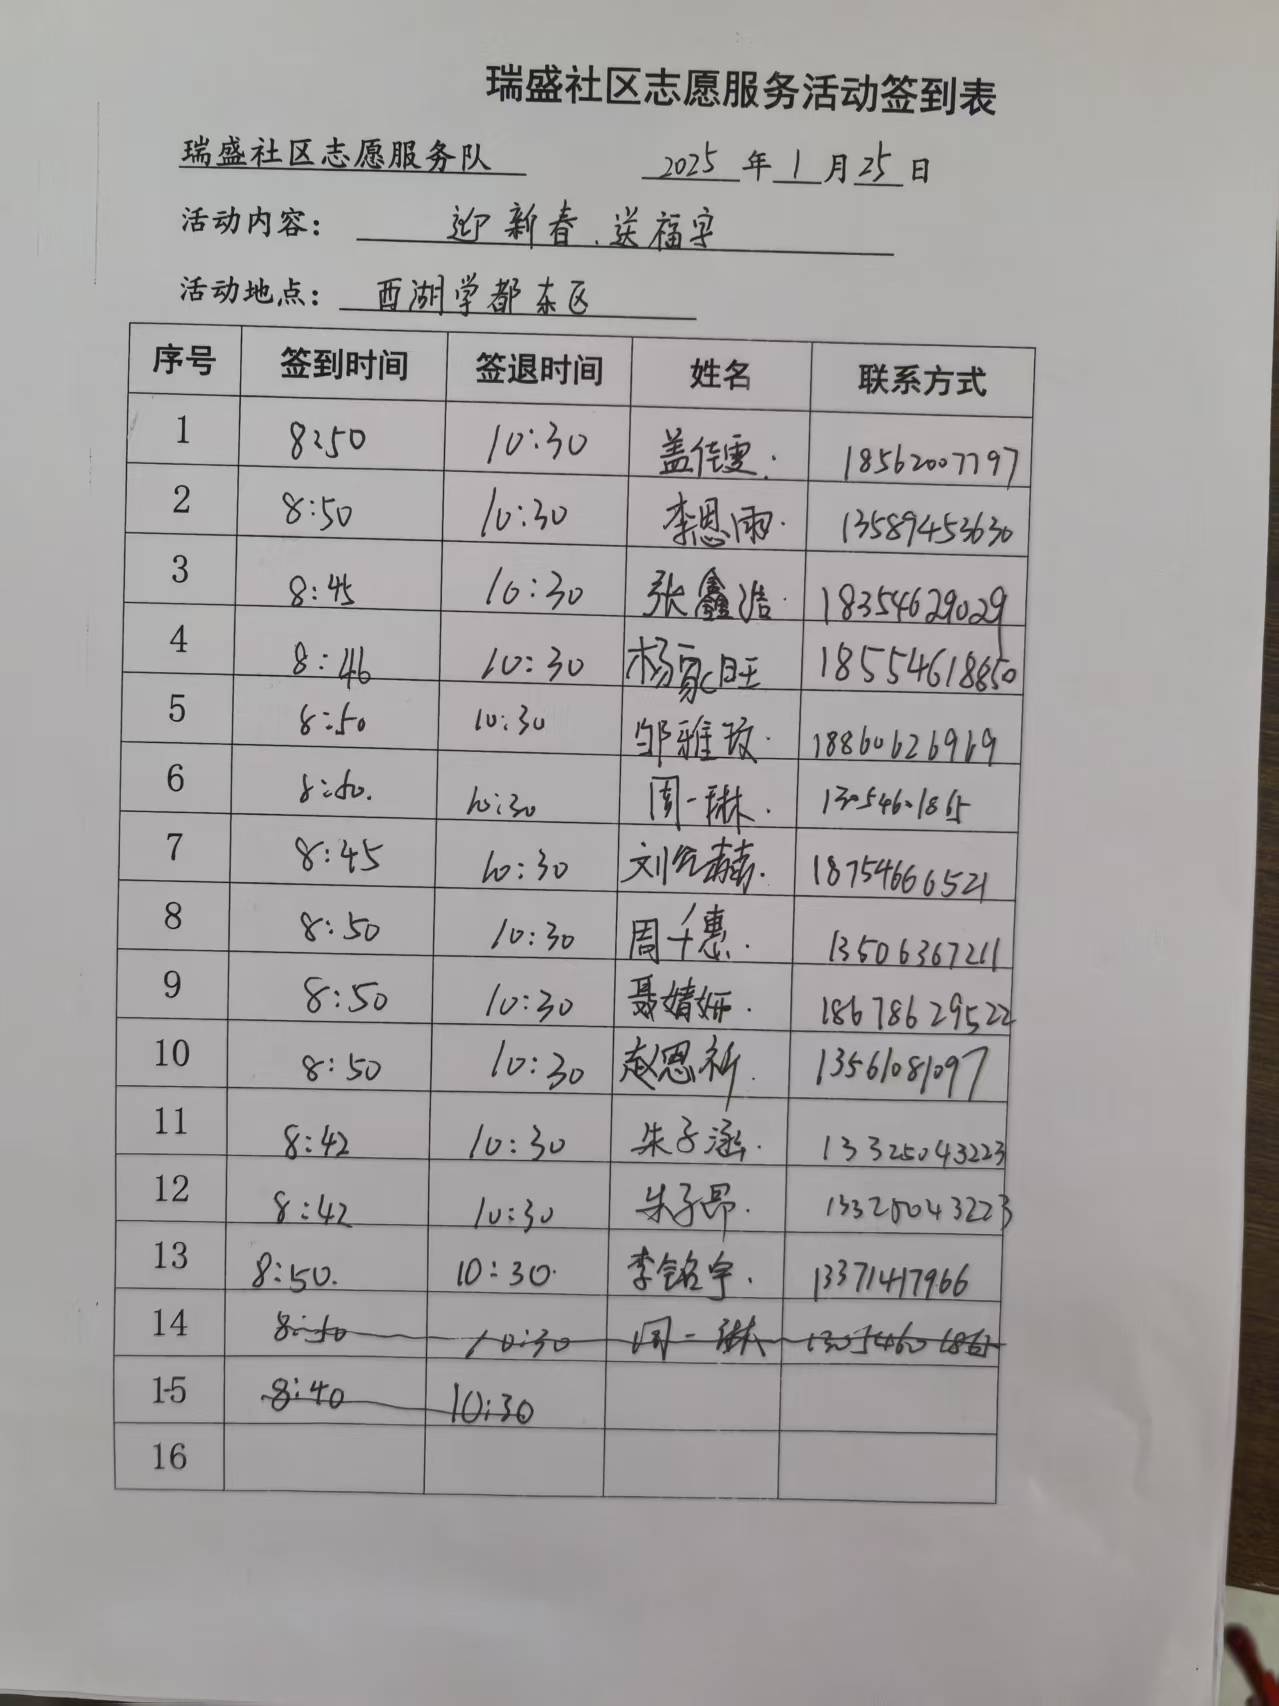 瑞盛社区志愿服务活动签到表
瑞盛社区志愿服务队 2025 年 1 月 25 日
活动内容： 迎新春.送福字
活动地点： 西湖学都东区
序号 签到时间 签退时间 姓名 联系方式
1 8:50 10:30 盖佳雯. 18562007797
2 8:50 10:30 李恩雨. 13589453630
3 8:45 10:30 张鑫浩. 18354629029
4 8:46 10:30 杨家旺 18554618850
5 8:50 10:30 邹雅玫. 18860626969
6 8:50. 10:30 周一琳. 13054601865
7 8:45 10:30 刘 18754666521
8 8:50 10:30 周千惠. 13506367211
9 8:50 10:30 聂婧妍. 18678629522
10 8:50 10:30 赵恩祈. 13561081097
11 8:42 10:30 朱子涵. 13325043223
12 8:42 10:30 朱子昂. 13325043223
13 8:50. 10:30. 李铭宇. 13371417966
14 8:50 10:30 周一琳 13054601865
15 8:40 10:30
16